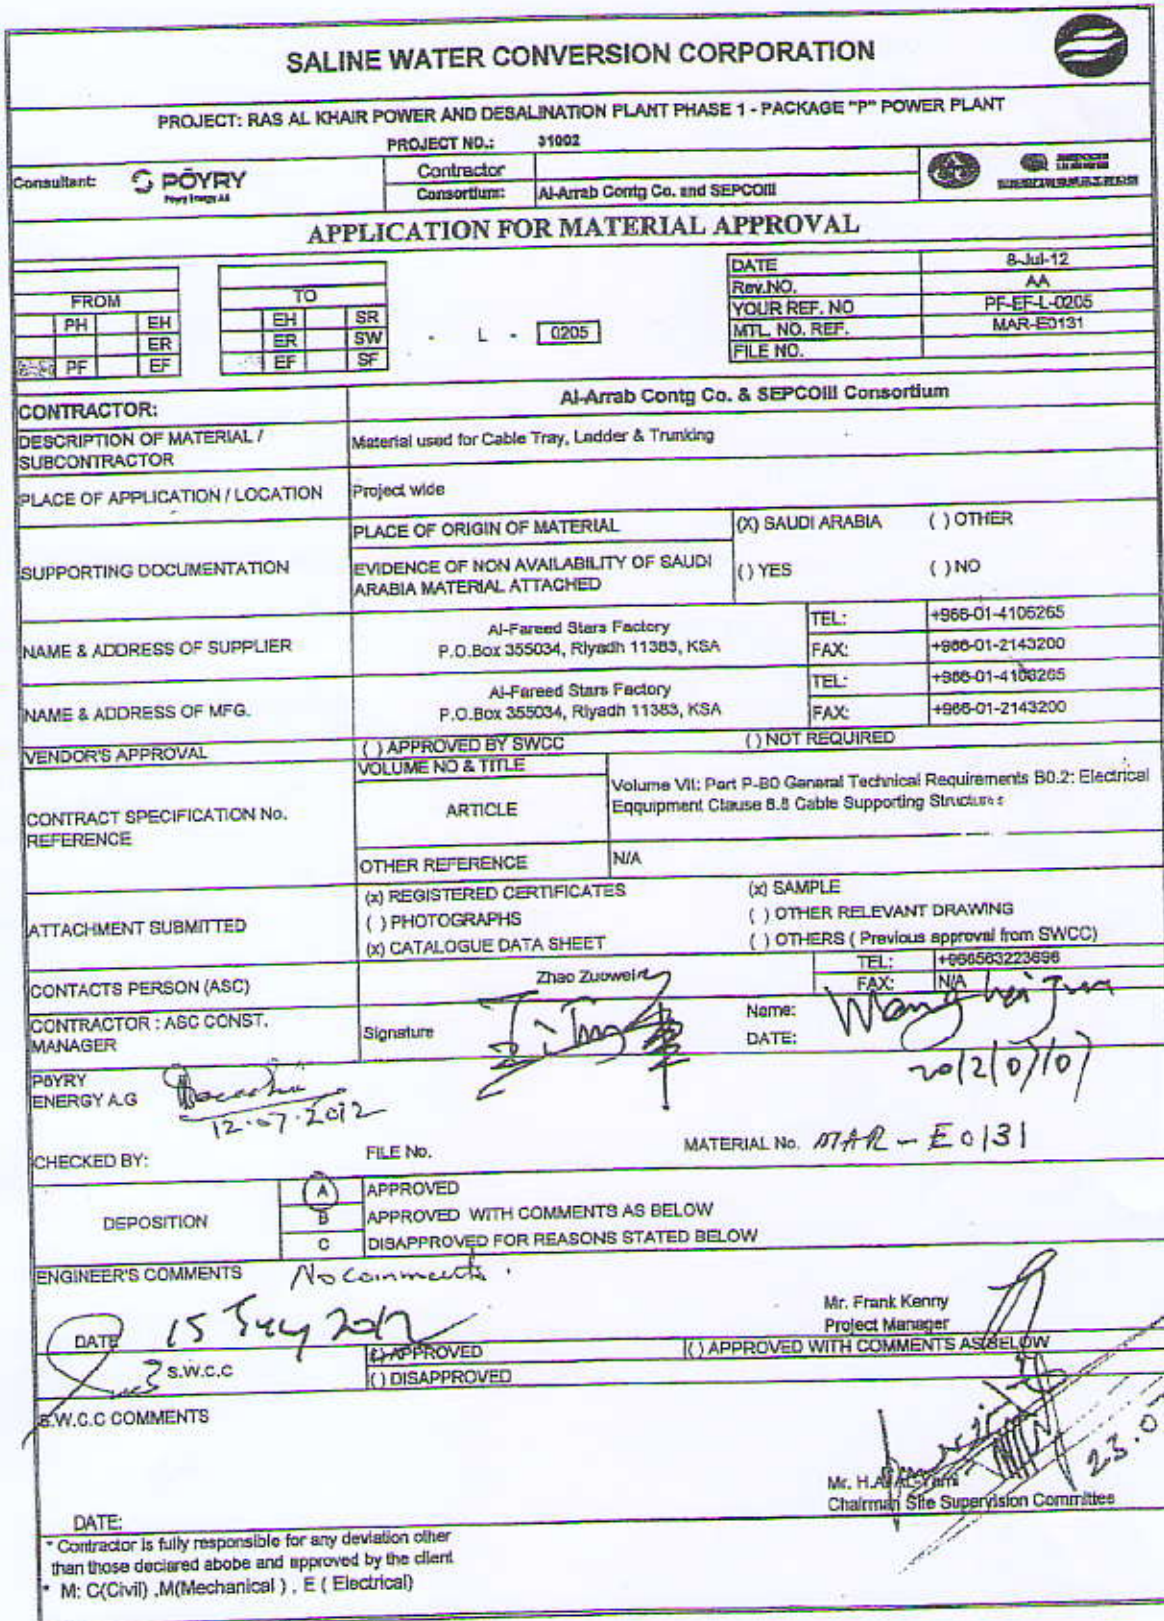 SALINE WATER CONVERSION CORPORATION
PROJECT: RAS AL KHAIR POWER AND DESALINATION PLANT PHASE 1 - PACKAGE "P" POWER PLANT
PROJECT NO.: 31002
Consultant: PÖYRY
Pöyry Energy AG
Contractor
Consortium: Al-Arrab Contg Co. and SEPCOIII
APPLICATION FOR MATERIAL APPROVAL
FROM
PH EH
ER
PF EF
TO
EH SR
ER SW
EF SF
- L - 0205
DATE 8-Jul-12
Rev.NO. AA
YOUR REF. NO PF-EF-L-0205
MTL. NO. REF. MAR-E0131
FILE NO.
CONTRACTOR: Al-Arrab Contg Co. & SEPCOIII Consortium
DESCRIPTION OF MATERIAL / SUBCONTRACTOR Material used for Cable Tray, Ladder & Trunking
PLACE OF APPLICATION / LOCATION Project wide
SUPPORTING DOCUMENTATION
PLACE OF ORIGIN OF MATERIAL (X) SAUDI ARABIA ( ) OTHER
EVIDENCE OF NON AVAILABILITY OF SAUDI ARABIA MATERIAL ATTACHED ( ) YES ( ) NO
NAME & ADDRESS OF SUPPLIER
Al-Fareed Stars Factory
P.O.Box 355034, Riyadh 11383, KSA
TEL: +966-01-4105265
FAX: +966-01-2143200
NAME & ADDRESS OF MFG.
Al-Fareed Stars Factory
P.O.Box 355034, Riyadh 11383, KSA
TEL:
FAX: +966-01-2143200
VENDOR'S APPROVAL ( ) APPROVED BY SWCC ( ) NOT REQUIRED
CONTRACT SPECIFICATION No. REFERENCE
VOLUME NO & TITLE
ARTICLE
Volume VII: Part P-B0 General Technical Requirements B0.2: Electrical
Eqquipment Clause 8.8 Cable Supporting Structures
OTHER REFERENCE N/A
ATTACHMENT SUBMITTED
(x) REGISTERED CERTIFICATES (x) SAMPLE
( ) PHOTOGRAPHS ( ) OTHER RELEVANT DRAWING
(x) CATALOGUE DATA SHEET ( ) OTHERS ( Previous approval from SWCC)
CONTACTS PERSON (ASC) Zhao Zuowei
TEL: +966563223696
FAX: N/A
CONTRACTOR : ASC CONST. MANAGER
Signature
Name: Wang hai Jun
DATE: 2012/07/07
PÖYRY
ENERGY A.G
12.07.2012
CHECKED BY: FILE No. MATERIAL No. MAR - E0131
DEPOSITION
A APPROVED
B APPROVED WITH COMMENTS AS BELOW
C DISAPPROVED FOR REASONS STATED BELOW
ENGINEER'S COMMENTS No comments.
Mr. Frank Kenny
Project Manager
DATE 15 July 2012
S.W.C.C
( ) APPROVED ( ) APPROVED WITH COMMENTS AS BELOW
( ) DISAPPROVED
S.W.C.C COMMENTS
23.0
Mr. H.A. AL-Yami
Chairman Site Supervision Committee
DATE:
* Contractor is fully responsible for any deviation other
than those declared abobe and approved by the client
* M: C(Civil) ,M(Mechanical ) , E ( Electrical)